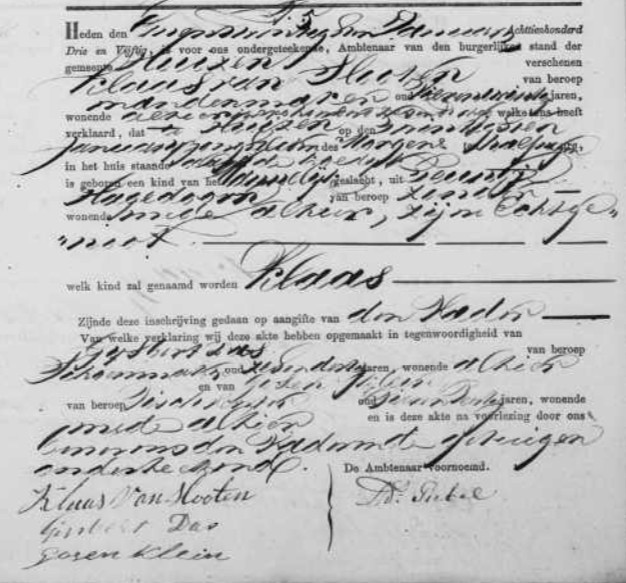 Heden den Een en twintigsten Januarij Achttienhonderd
Drie en Vijftig, is voor ons ondergeteekende, Ambtenaar van den burgerlijken stand der
gemeente Huizen verschenen
Klaas van Slooten van beroep
mandenmaker oud jaren,
wonende alhier welke ons heeft
verklaard, dat te Huizen op den
Januarij dezes jaars des Morgens te twaalf ure,
in het huis staande
is geboren een kind van het Mannelijk geslacht, uit
Hagedoorn van beroep zonder
wonende mede alhier, zijne Echtge„
„noot.
welk kind zal genaamd worden Klaas
Zijnde deze inschrijving gedaan op aangifte van den Vader
Van welke verklaring wij deze akte hebben opgemaakt in tegenwoordigheid van
Gijsbert Das van beroep
Schoenmaker oud jaren, wonende alhier
en van Gosen Klein
van beroep oud jaren, wonende
mede alhier en is deze akte na voorlezing door ons
benevens den Vader en de getuigen
onderteekend.
De Ambtenaar voornoemd.
Klaas Van Slooten
Gijsbert Das
Gosen Klein